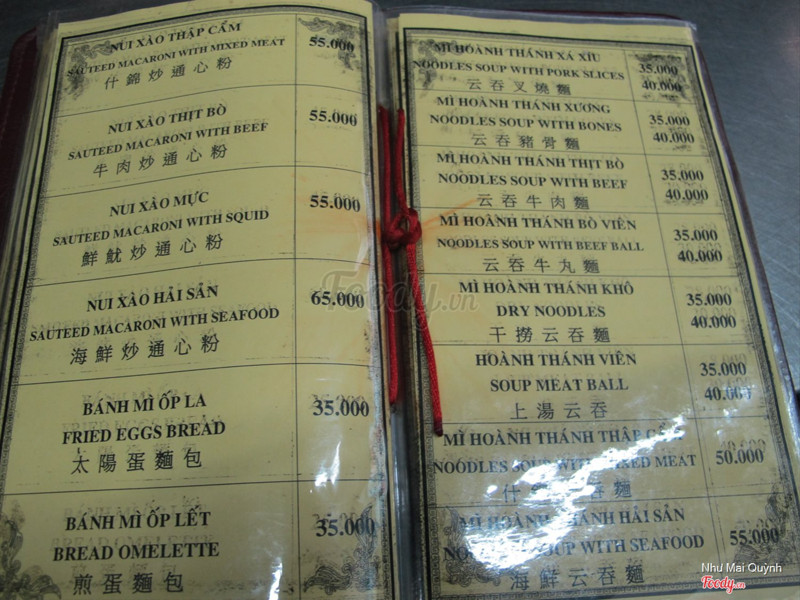 NUI XÀO THẬP CẨM
SAUTEED MACARONI WITH MIXED MEAT
什錦炒通心粉
55.000
NUI XÀO THỊT BÒ
SAUTEED MACARONI WITH BEEF
牛肉炒通心粉
55.000
NUI XÀO MỰC
SAUTEED MACARONI WITH SQUID
鮮魷炒通心粉
55.000
NUI XÀO HẢI SẢN
SAUTEED MACARONI WITH SEAFOOD
海鮮炒通心粉
65.000
BÁNH MÌ ỐP LA
FRIED EGGS BREAD
太陽蛋麵包
35.000
BÁNH MÌ ỐP LẾT
BREAD OMELETTE
煎蛋麵包
35.000
MÌ HOÀNH THÁNH XÁ XÍU
NOODLES SOUP WITH PORK SLICES
云吞叉燒麵
35.000
40.000
MÌ HOÀNH THÁNH XƯƠNG
NOODLES SOUP WITH BONES
云吞豬骨麵
35.000
40.000
MÌ HOÀNH THÁNH THỊT BÒ
NOODLES SOUP WITH BEEF
云吞牛肉麵
35.000
40.000
MÌ HOÀNH THÁNH BÒ VIÊN
NOODLES SOUP WITH BEEF BALL
云吞牛丸麵
35.000
40.000
MÌ HOÀNH THÁNH KHÔ
DRY NOODLES
干撈云吞麵
35.000
40.000
HOÀNH THÁNH VIÊN
SOUP MEAT BALL
上湯云吞
35.000
40.000
MÌ HOÀNH THÁNH THẬP CẨM
NOODLES SOUP WITH MIXED MEAT
什錦云吞麵
50.000
MÌ HOÀNH THÁNH HẢI SẢN
NOODLES SOUP WITH SEAFOOD
海鮮云吞麵
55.000
Foody.vn
Như Mai Quỳnh
Foody.vn